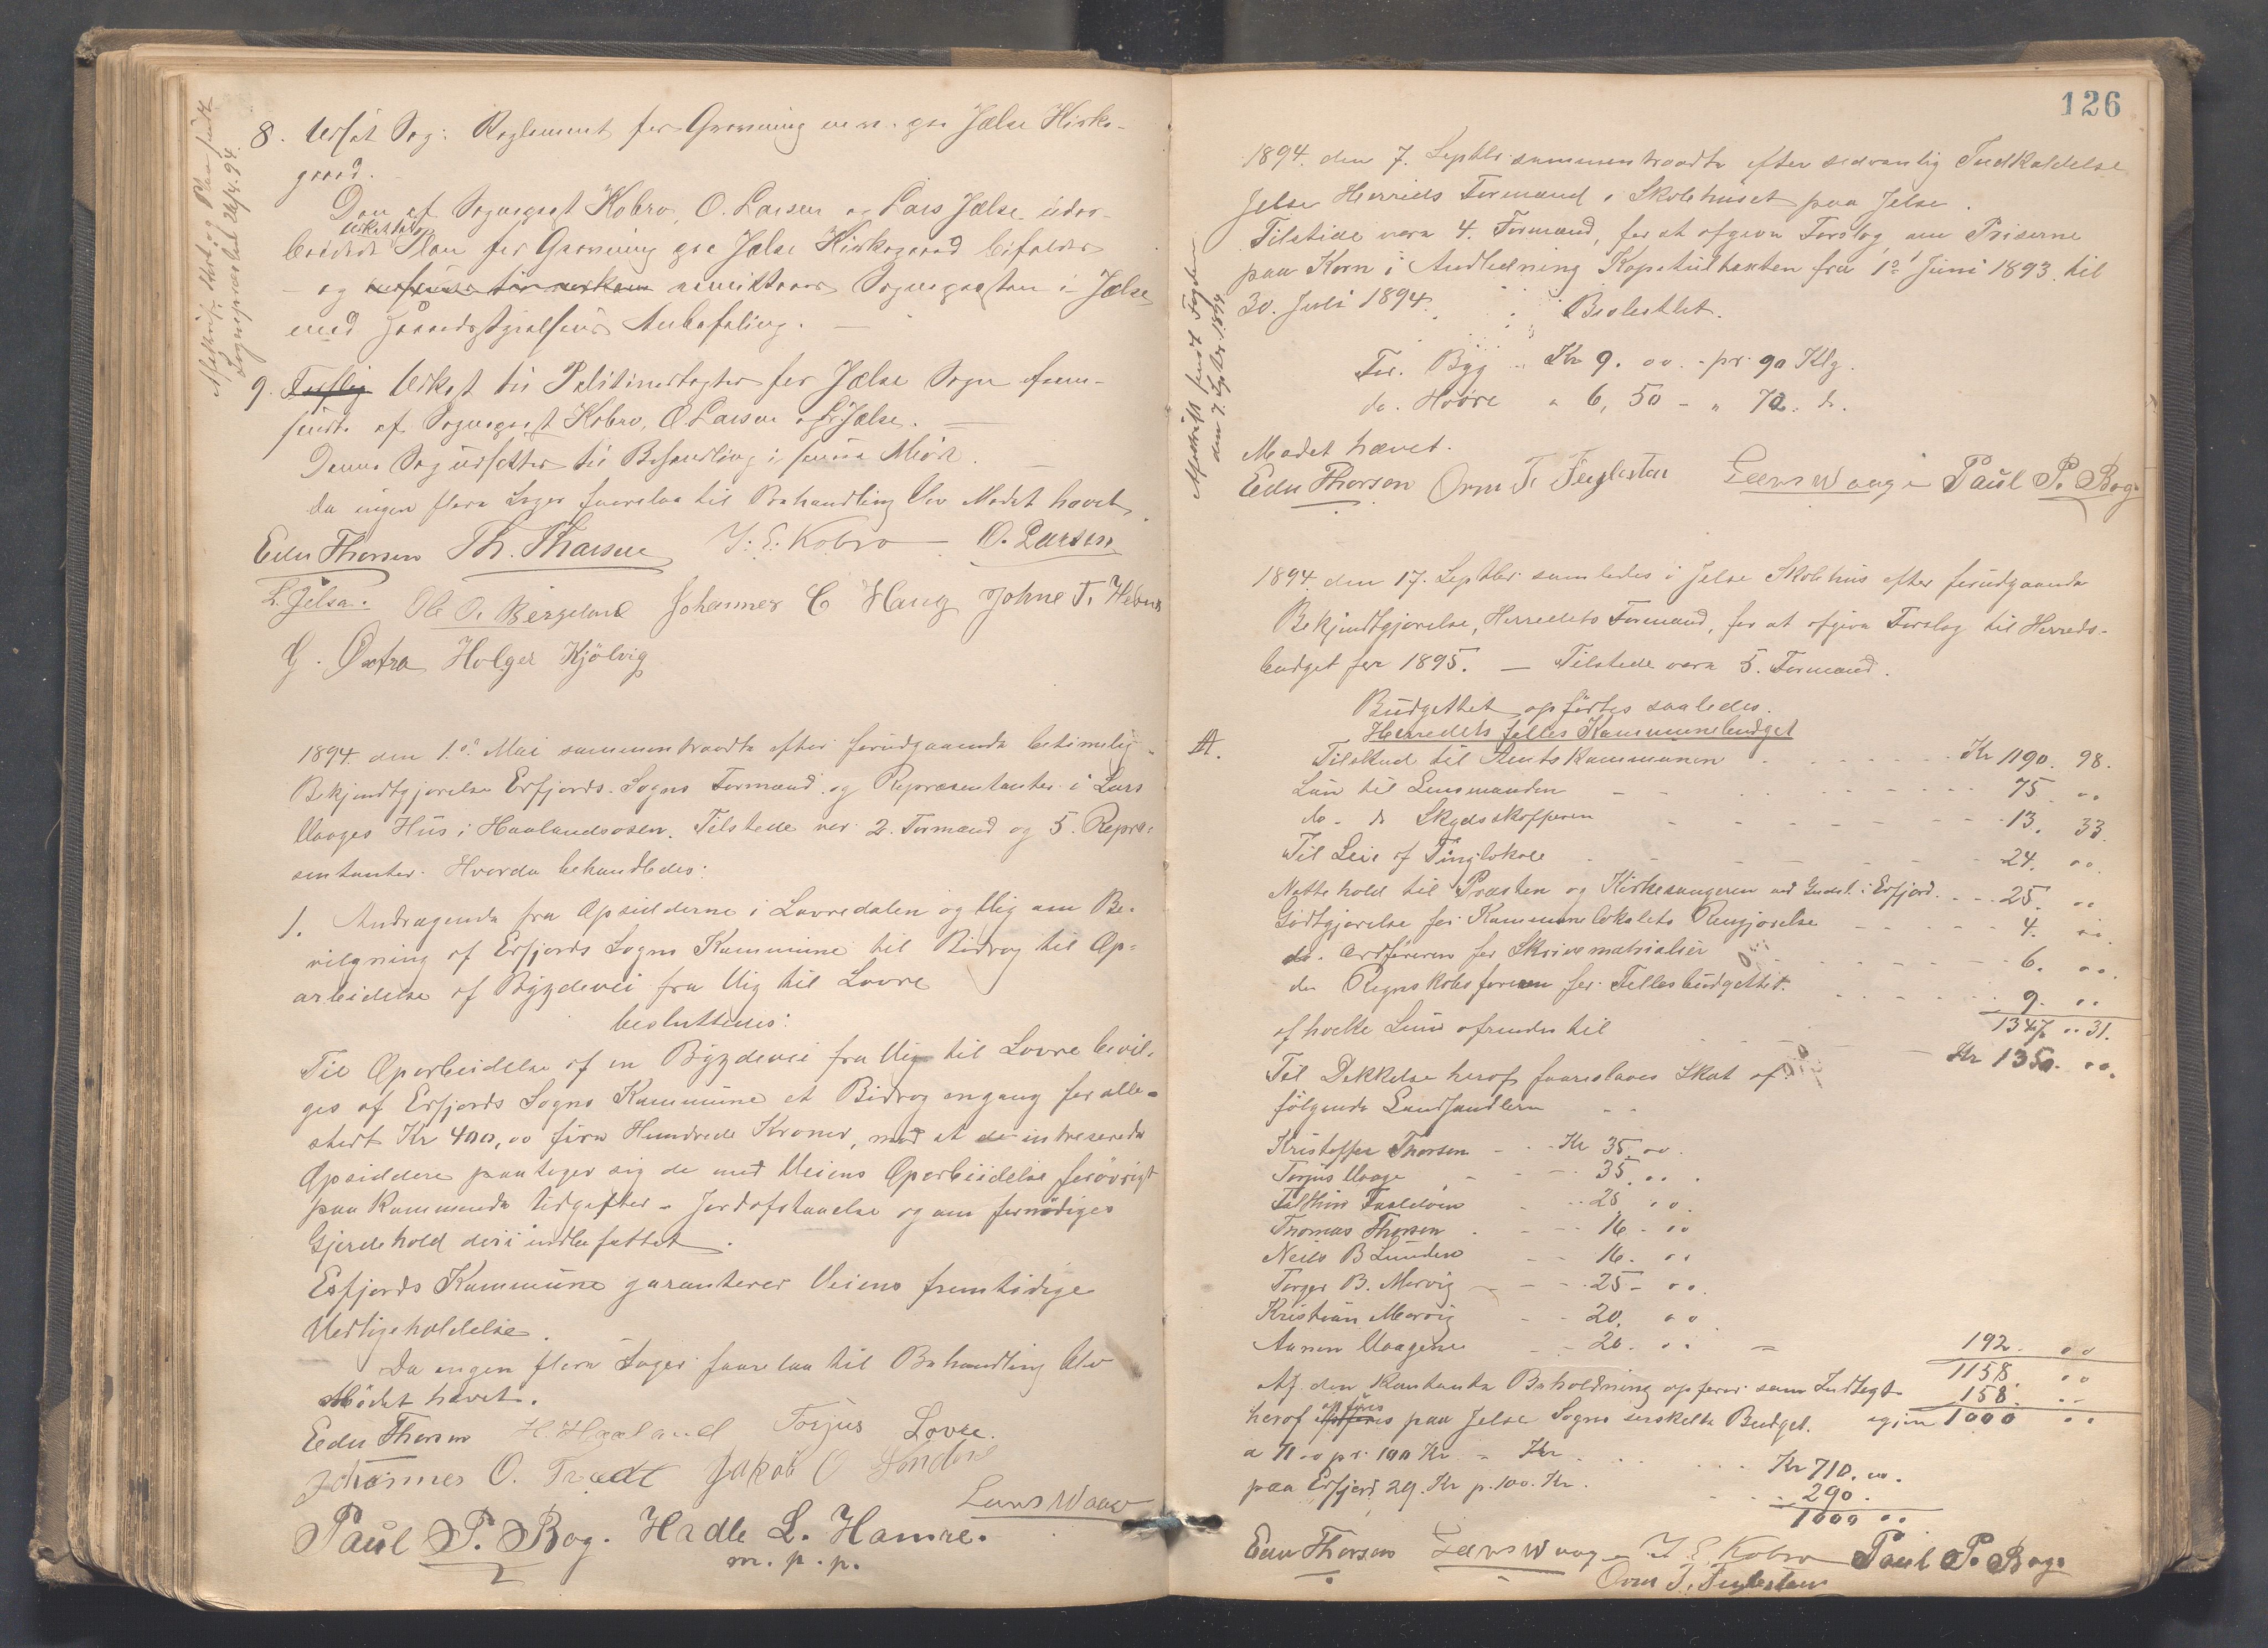 8. Udsat Sag: Reglement for Gravning m. m. paa Jælse Kirke-
gaard.
Den af Sognepræst Kobro, O. Larsen og Lars Jælse udar-
beidede Plan for Gravning paa Jælse Kirkegaard bifaldes
og Sognepræsten i Jælse
med Herredsstyrelsens Anbefaling.
9. Udkast til Politivedtægter for Jælse Sogn frem-
sendt af Sognepræst Kobro, O. Larsen og L. Jælse.
Denne Sag udsættes til Behandling i senere Møde.
Da ingen flere Sager forelaa til Behandling blev Mødet hævet.
Edu Thorsen Th. Thorsen J. E. Kobro O. Larsen
L. Jelsa. Ole O. Bergeland Johannes C Haug Johne T.
G. Østra Holger Kjölvig
1894 den 1ste Mai sammentraadte efter forudgaaende betimelig
Bekjendtgjørelse Erfjords Sogns Formænd og Repræsentanter i Lars
Vaages Hus i Haalandsosen. Tilstede var 2. Formænd og 5. Repræ-
sentanter. Hvorda behandledes:
1. Andragende fra Opsidderne i Lovredalen og Vig om Be-
vilgning af Erfjords Sogns Kommune til Bidrag til Op-
arbeidelse af Bygdevei fra Vig til Lovre
besluttedes:
Til Oparbeidelse af en Bygdevei fra Vig til Lovre bevil-
ges af Erfjords Sogns Kommune et Bidrag engang for alle
stort Kr 400,00 fire Hundrede Kroner, mod at de intreserede
Opsiddere paatager sig de med Veiens Oparbeidelse forövrigt
paa kommende Udgifter - Jordafstaaelse og om fornödiges
Gjerdehold deri indbefattet.
Erfjords Kommune garanterer Veiens fremtidige
Vedligeholdelse.
Da ingen flere Sager forelaa til Behandling blev
Mödet hævet.
Edu Thorsen H. Haaland Torjus Lovre.
Johannes O. Tredt Jakob O
Lars Waage
Paul P. Bog. Hadle L. Hamre.
m. p. p.
126
1894. den 7. Septbr. sammentraadte efter sedvanlig Indkaldelse
Jelse Herreds Formænd i Skolehuset paa Jelse.
Tilstede vare 4. Formænd, for at afgive Forslag om Priserne
paa Korn i Anledning Kapitultaxten fra 1ste Juni 1893 til
30. Juli 1894.
Besluttet.
For. Byg - Kr 9. 00. - pr. 90 Klg.
do. Havre " 6, 50 - " 72. do.
Mødet hævet.
Edu Thorsen Orm T. Fuglestein Lars Waage Paul P. Bog
Afskrift sendt Fogden
den 7. Septbr. 1894.
1894 den 17. Septbr. samledes i Jelse Skolehus efter forudgaaende
Bekjendtgjørelse, Herredets Formænd, for at afgive Forslag til Herreds-
budget for 1895. — Tilstede vare 5. Formænd.
Budgettet opførtes saaledes.
Herredets fælles Kommunebudget
A. Tilskud til Amtskommunen Kr 1190. 98.
Lön til Lensmanden 75. 00
do. do Skydsskafferen 13. 33
Til Leie af Tinglokale 24. 00
Nattehold til Præsten og Kirkesangeren ved Gudst. i Erfjord 25. 00
Godtgjørelse for Kommunelokalets Rengjørelse 4. 00
do. Ordføreren for Skrivematrialier 6. 00
do Regnskabsføreren for Fællesbudgettet 9. 00
1347 .. 31.
af hvilke Sum afrundes til Kr 1350. 00.
Til Dekkelse heraf foreslaaes Skat af
fölgende Landhandlere
Kristoffer Thorsen Kr 35.00.
Torjus Vaage 35.00.
25 00.
Thomas Thorsen 16 - 00
Neils B Lunden 16. 00
Torger B. Marvig 25 - 00.
Kristian Marvig 20. 00
Aanen Vaagene 20. 00 = 192. 00
1158. 00
Af den kontante Beholdning opføres som Indtægt 158. 00
heraf opføres paa Jelse Sogns serskilte Budget. igjen 1000 00
a 71.00 pr. 100 Kr. - Kr Kr 710.00.
paa Erfjord 29. Kr p. 100. Kr. 290.
1000 00
Edu Thorsen Lars Waage J. E. Kobro Paul P. Bog.
Orm T. Fuglestein